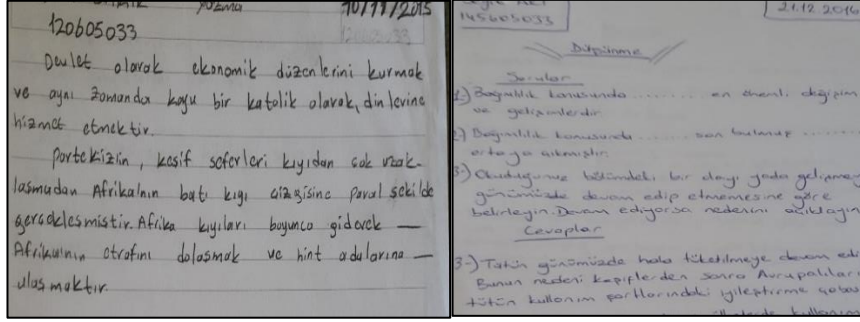 yazma
10/11/2015
120605033
Devlet olarak ekonomik düzenlerini kurmak
ve aynı zamanda koyu bir katolik olarak, dinlerine
hizmet etmektir.
Portekizin, kesif seferleri kıyıdan cok uzak-
lasmadan Afrika'nın batı kıyı cizgisine paralel sekilde
gerceklesmistir. Afrika kıyıları boyunca giderek —
Afrika'nın etrafını dolasmak ve hint adalarına —
ulasmaktır.
145605033
21.12.2016
Düşünme
Sorular
1-) Bağımlılık konusunda ......... en önemli değişim
ve gelişimlerdir.
2-) Bağımlılık konusunda ....... son bulmuş .......
ortaya çıkmıştır.
3-) Okuduğunuz bölümdeki bir olayı yada gelişmeyi
günümüzde devam edip etmemesine göre
belirleyin. Devam ediyorsa nedenini açıklayın
Cevaplar
3-) Tütün günümüzde hala tüketilmeye devam edi
Bunun nedeni keşiflerden sonra Avrupalılar
tütün kullanım şartlarındaki iyileştirme çaba
kullanım